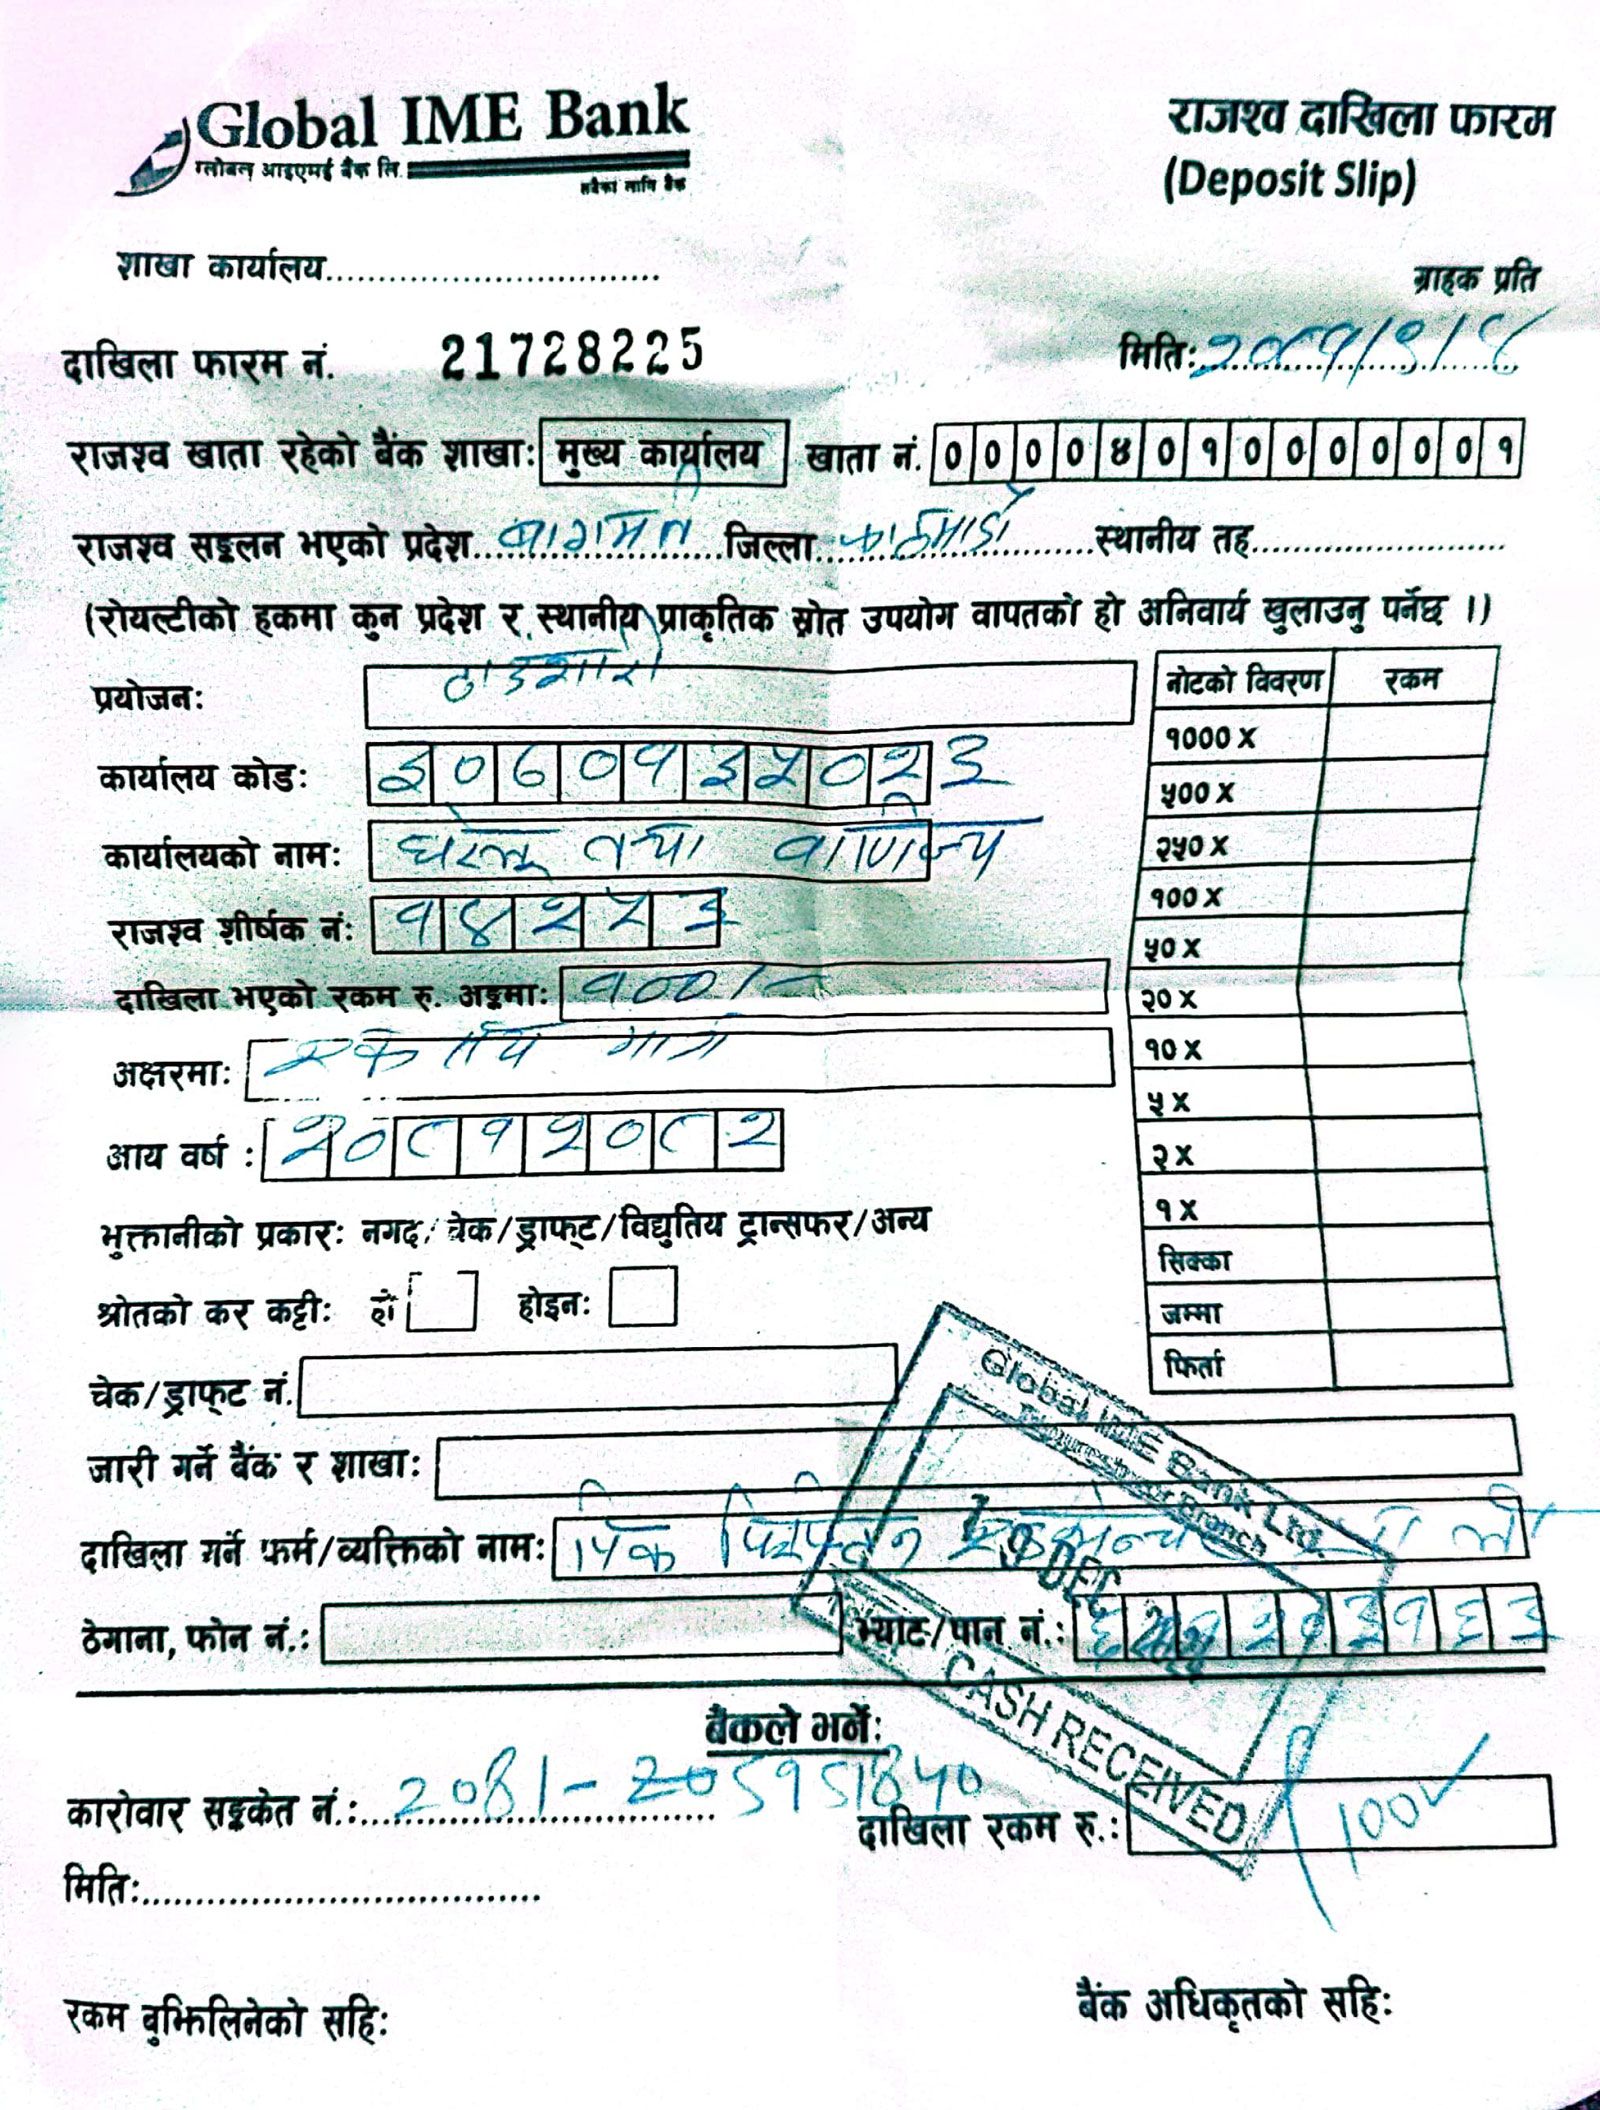 Global IME Bank
ग्लोबल आइएमई बैंक लि.
सबैका लागि बैंक
राजश्व दाखिला फारम
(Deposit Slip)
शाखा कार्यालय................................
ग्राहक प्रति
दाखिला फारम नं. 21728225
मिति:
राजश्व खाता रहेको बैंक शाखा: मुख्य कार्यालय खाता नं. ००००४०१०००००००१
राजश्व सङ्कलन भएको प्रदेश बागमती जिल्ला काठमाडौं स्थानीय तह........................
(रोयल्टीको हकमा कुन प्रदेश र स्थानीय प्राकृतिक स्रोत उपयोग वापतको हो अनिवार्य खुलाउनु पर्नेछ ।)
प्रयोजन:
कार्यालय कोड: ३०७०१३५०२३
कार्यालयको नाम: घरेलु तथा वाणिज्य
राजश्व शीर्षक नं: १४२२३
दाखिला भएको रकम रु. अङ्कमा: १००/-
अक्षरमा: एक सय मात्र
आय वर्ष : २०८१२०८२
भुक्तानीको प्रकार: नगद/चेक/ड्राफ्ट/विद्युतिय ट्रान्सफर/अन्य
श्रोतको कर कट्टी: हो होइन:
चेक/ड्राफ्ट नं.
जारी गर्ने बैंक र शाखा:
दाखिला गर्ने फर्म/व्यक्तिको नाम:
ठेगाना, फोन नं.: भ्याट/पान नं.:
नोटको विवरण रकम
१००० X
५०० X
२५० X
१०० X
५० X
२० X
१० X
५ X
२ X
१ X
सिक्का
जम्मा
फिर्ता
Global IME Bank Ltd.
Branch
DEC
CASH RECEIVED
बैंकले भर्ने:
कारोवार सङ्केत नं.: 2081-205951840
दाखिला रकम रु.: 100
मिति:......................................
रकम बुझिलिनेको सहि:
बैंक अधिकृतको सहि: